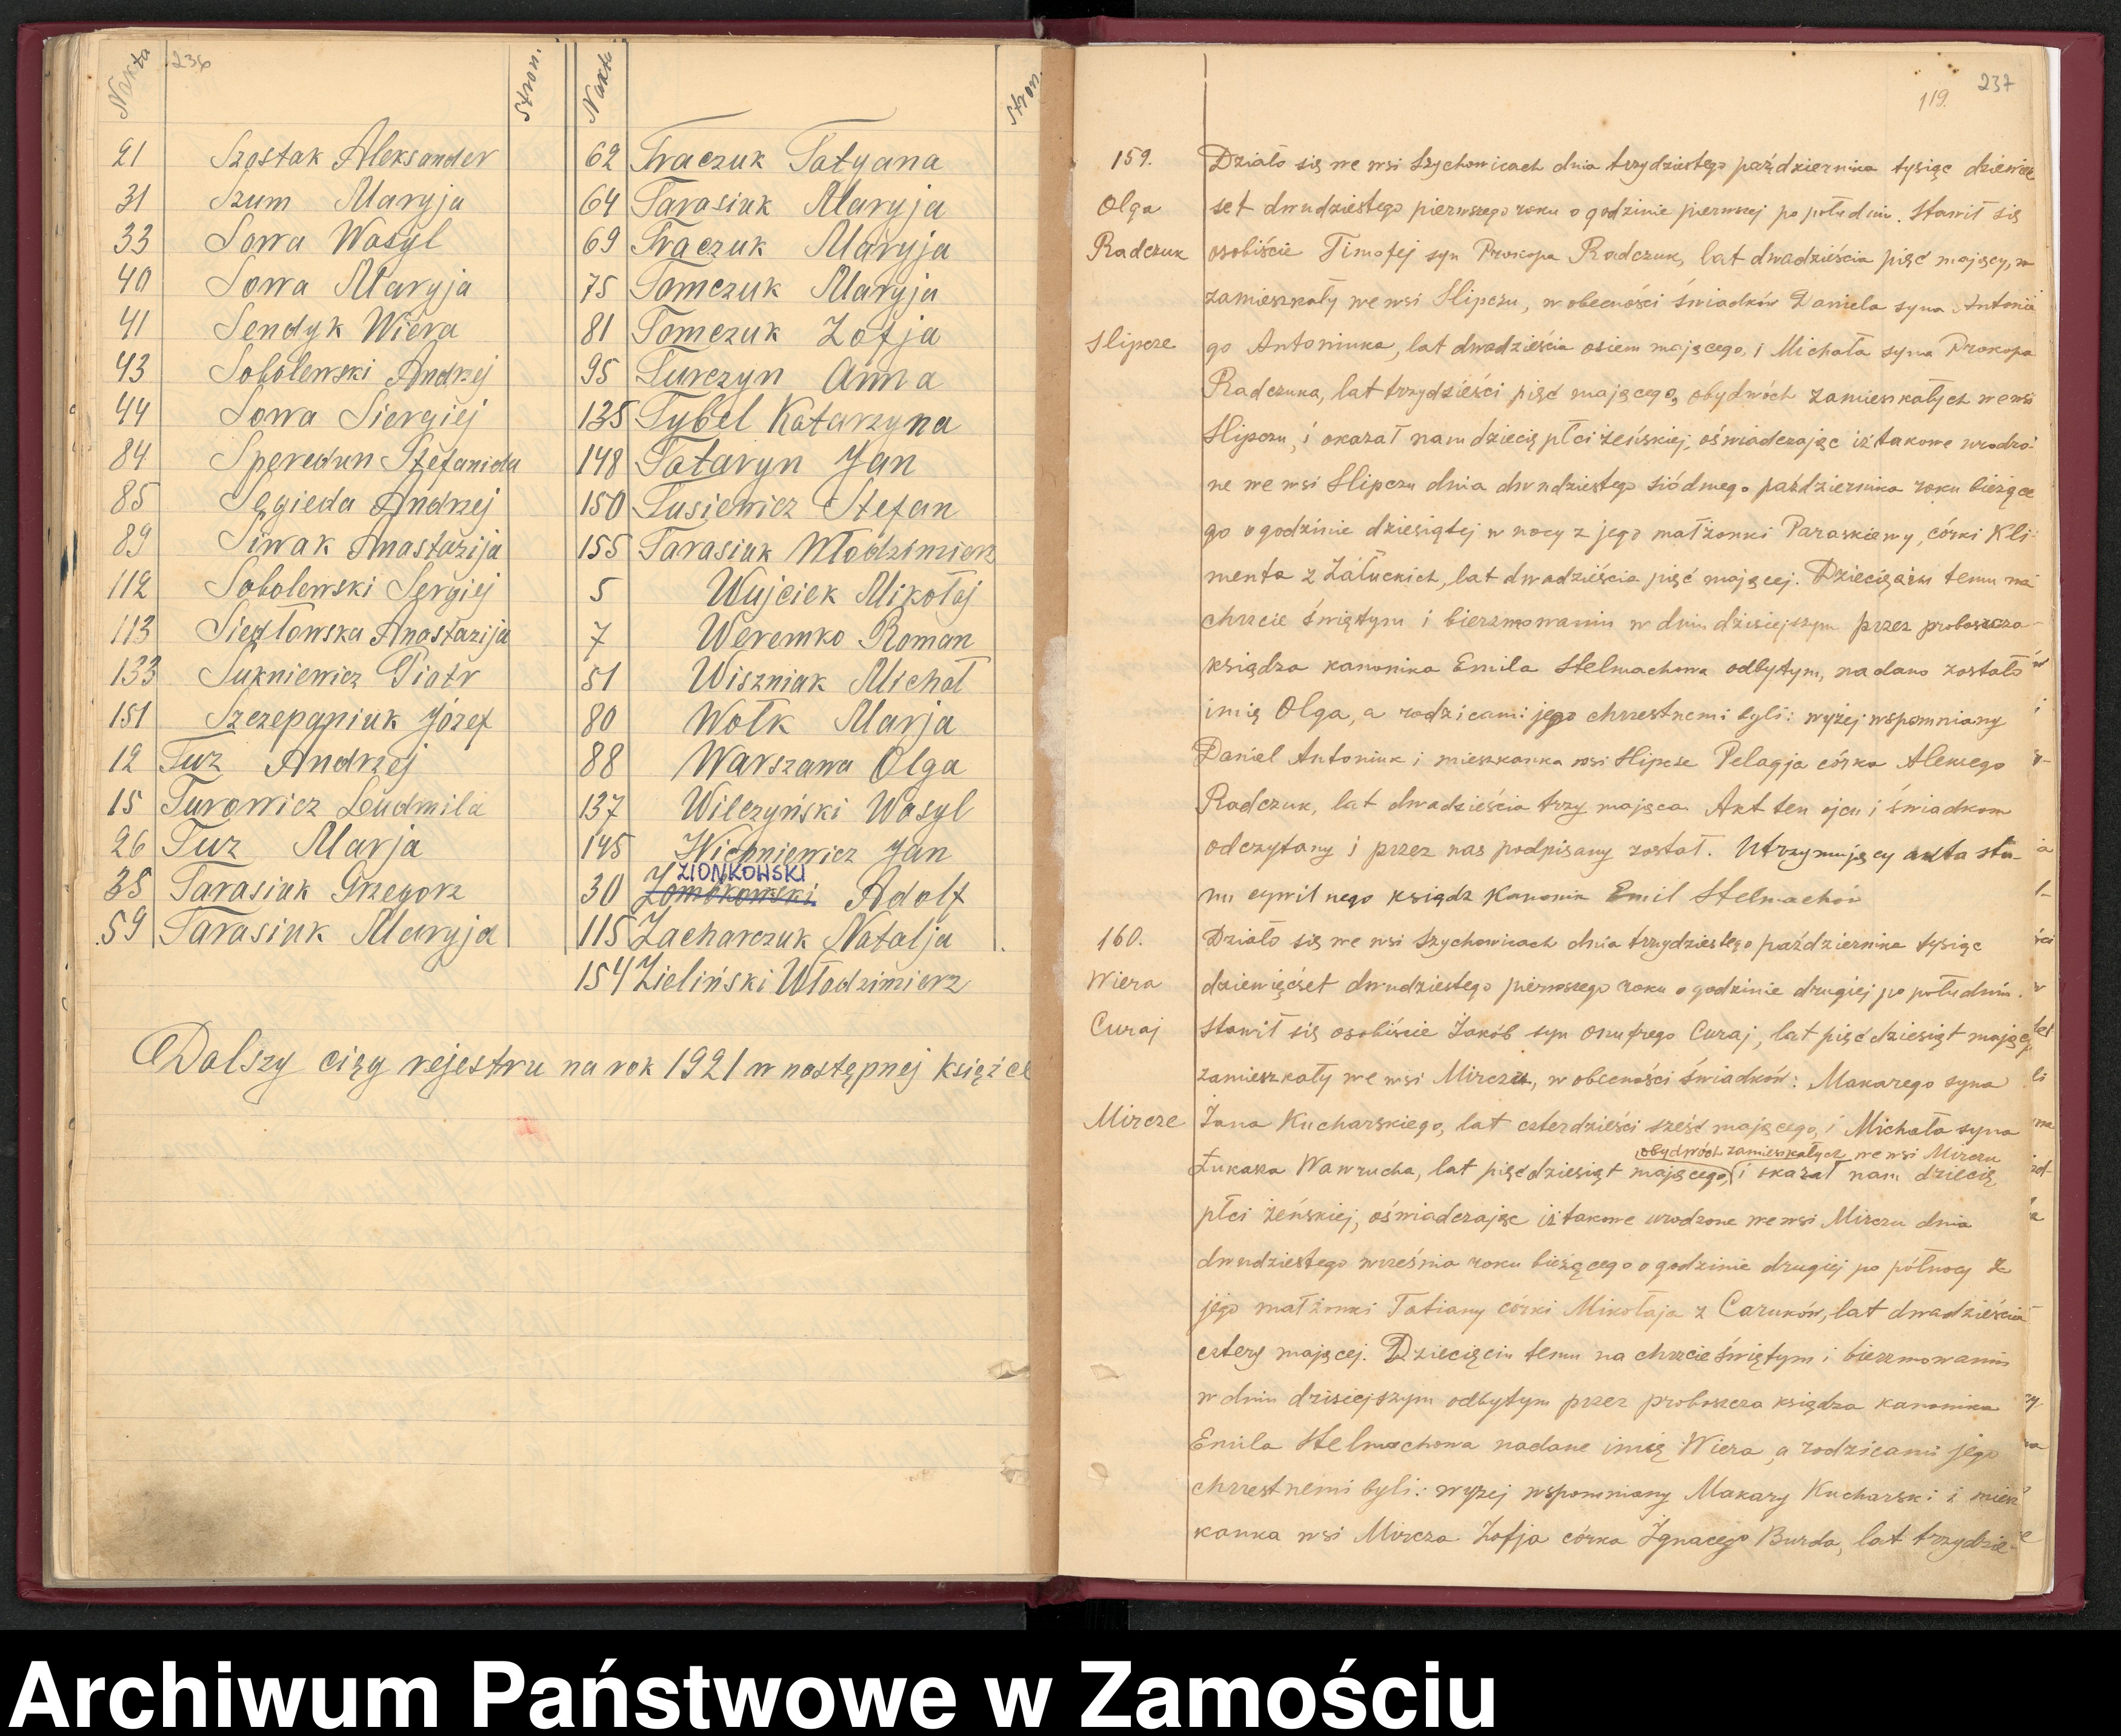 N akta
236
Stron.
21 Szostak Aleksander
31 Szum Maryja
33 Sowa Wasyl
40 Sowa Maryja
41 Sendyk Wiera
43 Sobolewski Andrzej
44 Sowa Siergiej
84 Speredun Stefanida
85 Segieda Andrzej
89 Siwak Anastazija
112 Sobolewski Sergiej
113 Siedłowska Anastazija
133 Sukniewicz Piotr
151 Szczepaniuk Józef
12 Tuz Andrzej
15 Turowicz Ludmila
26 Tuz Marja
35 Tarasiuk Grzegorz
59 Tarasiuk Maryja
N akta
Stron.
62 Traczuk Tatyana
64 Tarasiuk Maryja
69 Traczuk Maryja
75 Tomczuk Maryja
81 Tomczuk Zofja
95 Turczyn Anna
135 Tybel Katarzyna
148 Tataryn Jan
150 Tusiewicz Stefan
155 Tarasiuk Włodzimierz
5 Wujciek Mikołaj
7 Weremko Roman
51 Wiszniak Michał
80 Wołk Marja
88 Warszawa Olga
137 Wilczyński Wasyl
145 Wichniewicz Jan
ZIONKOWSKI
30 Adolf
115 Zacharczuk Natalja
154 Zieliński Włodzimierz
Dalszy ciąg rejestru na rok 1921 w następnej księżce
237
119.
159.
Olga
Radczuk
Slipcze
Działo się we wsi Szychowicach dnia trzydziestego października tysiąc dziewięć
set dwudziestego pierwszego roku o godzinie pierwszej po południu. Stawił się
osobiście Timofej syn Prokopa Radczuk, lat dwadzieścia pięć mający,
zamieszkały we wsi Slipczu, w obecności świadków Daniela syna Antonie
go Antoniuka, lat dwadzieścia osiem mającego, i Michała syna Prokopa
Radczuka, lat trzydzieści pięć mającego, obydwóch zamieszkałych we wsi
Slipczu, i okazał nam dziecię płci żeńskiej, oświadczając iż takowe urodzo-
ne we wsi Slipczu dnia dwudziestego siódmego października roku bieżące
go o godzinie dziesiątej w nocy z jego małżonki Paraskiewy, córki Kli-
menta z Załuckich, lat dwadzieścia pięć mającej. Dziecięciu temu na
chrzcie świętym i bierzmowaniu w dniu dzisiejszym przez proboszcza
księdza kanonika Emila Stelmachowa odbytym, nadano zostało
imię Olga, a rodzicami jego chrzestnemi byli: wyżej wspomniany
Daniel Antoniuk i mieszkanka wsi Slipcze Pelagja córka Aleksego
Radczuk, lat dwadzieścia trzy mająca. Akt ten ojcu i świadkom
odczytany i przez nas podpisany został. Utrzymujący akta sta-
nu cywilnego ksiądz Kanonik Emil Stelmachów
160.
Wiera
Curaj
Mircze
Działo się we wsi Szychowicach dnia trzydziestego października tysiąc
dziewięćset dwudziestego pierwszego roku o godzinie drugiej po południu.
Stawił się osobiście Jakób syn Onufrego Curaj, lat pięćdziesiąt mający
zamieszkały we wsi Mirczu, w obecności świadków: Makarego syna
Jana Kucharskiego, lat czterdzieści sześć mającego, i Michała syna
obydwóch zamieszkałych we wsi Mirczu
Łukasza Wawrucha, lat pięćdziesiąt mającego, i okazał nam dziecię
płci żeńskiej, oświadczając iż takowe urodzone we wsi Mirczu dnia
dwudziestego września roku bieżącego o godzinie drugiej po północy z
jego małżonki Tatiany córki Mikołaja z Caruków, lat dwadzieścia
cztery mającej. Dziecięciu temu na chrzcie świętym i bierzmowaniu
w dniu dzisiejszym odbytym przez proboszcza księdza kanonika
Emila Stelmachowa nadane imię Wiera, a rodzicami jego
chrzestnemi byli: wyżej wspomniany Makary Kucharski i miesz
kanka wsi Mircza Zofja córka Ignacego Burda, lat trzydzie-
Archiwum Państwowe w Zamościu